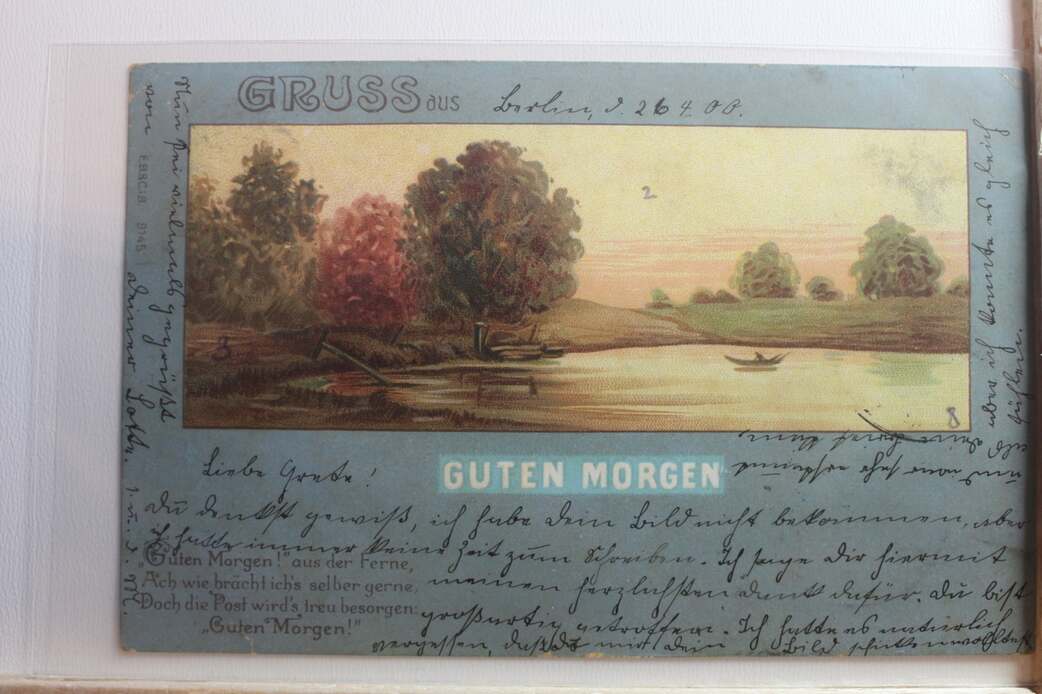 GRUSS aus Berlin, d. 26 4. 00.
Liebe Grete!
GUTEN MORGEN
Du denkst gewiß, ich habe dein Bild nicht bekommen, aber
ich hatte immer keine Zeit zum Schreiben. Ich sage Dir hiermit
meinen herzlichsten Dank dafür. Du bist
großartig getroffen. Ich hatte es natürlich
vergessen, daß Du mir dein Bild schicken wolltest
„Guten Morgen!" aus der Ferne,
Ach wie brächt ich's selber gerne,
Doch die Post wird's treu besorgen:
„Guten Morgen!"
aber ich konnte es gleich
fühlen.
Nun sei vielmals gegrüßt
von
deiner Lotte.
EBBC:B 8145
2
3
8